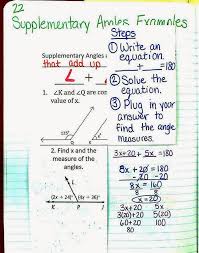 22
Supplementary Angles Examples
Steps
① Write an
equation.
+ =180
② Solve the
equation.
③ Plug in your
answer to
find the angle
measures.
Supplementary Angles
that add up
∠ +
1. ∠K and ∠Q are
value of x.
x
2. Find x and the
measure of the
angles.
L
K P J
3x+20 + 5x =180
8x + 20 = 180
-20 -20
8x = 160
8 8
x=20
3x+20 5x
3(20)+20 5(20)
60+20 100
80